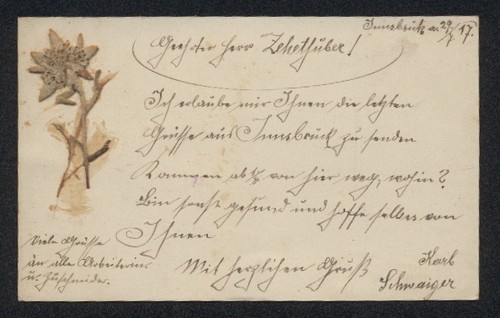 Innsbruck am 29/7 17.
Geehrter Herr Zehethuber!
Ich erlaube mir Ihnen die letzten
Grüsse aus Innsbruck zu senden
Kommen ab von hier weg, wohin?
Bin sonst gesund und hoffe selbes von
Ihnen
Mit herzlichen Gruß
Karl
Schwaiger
Viele Grüsse
an alle Arbeiterin
u. Zuschneider.